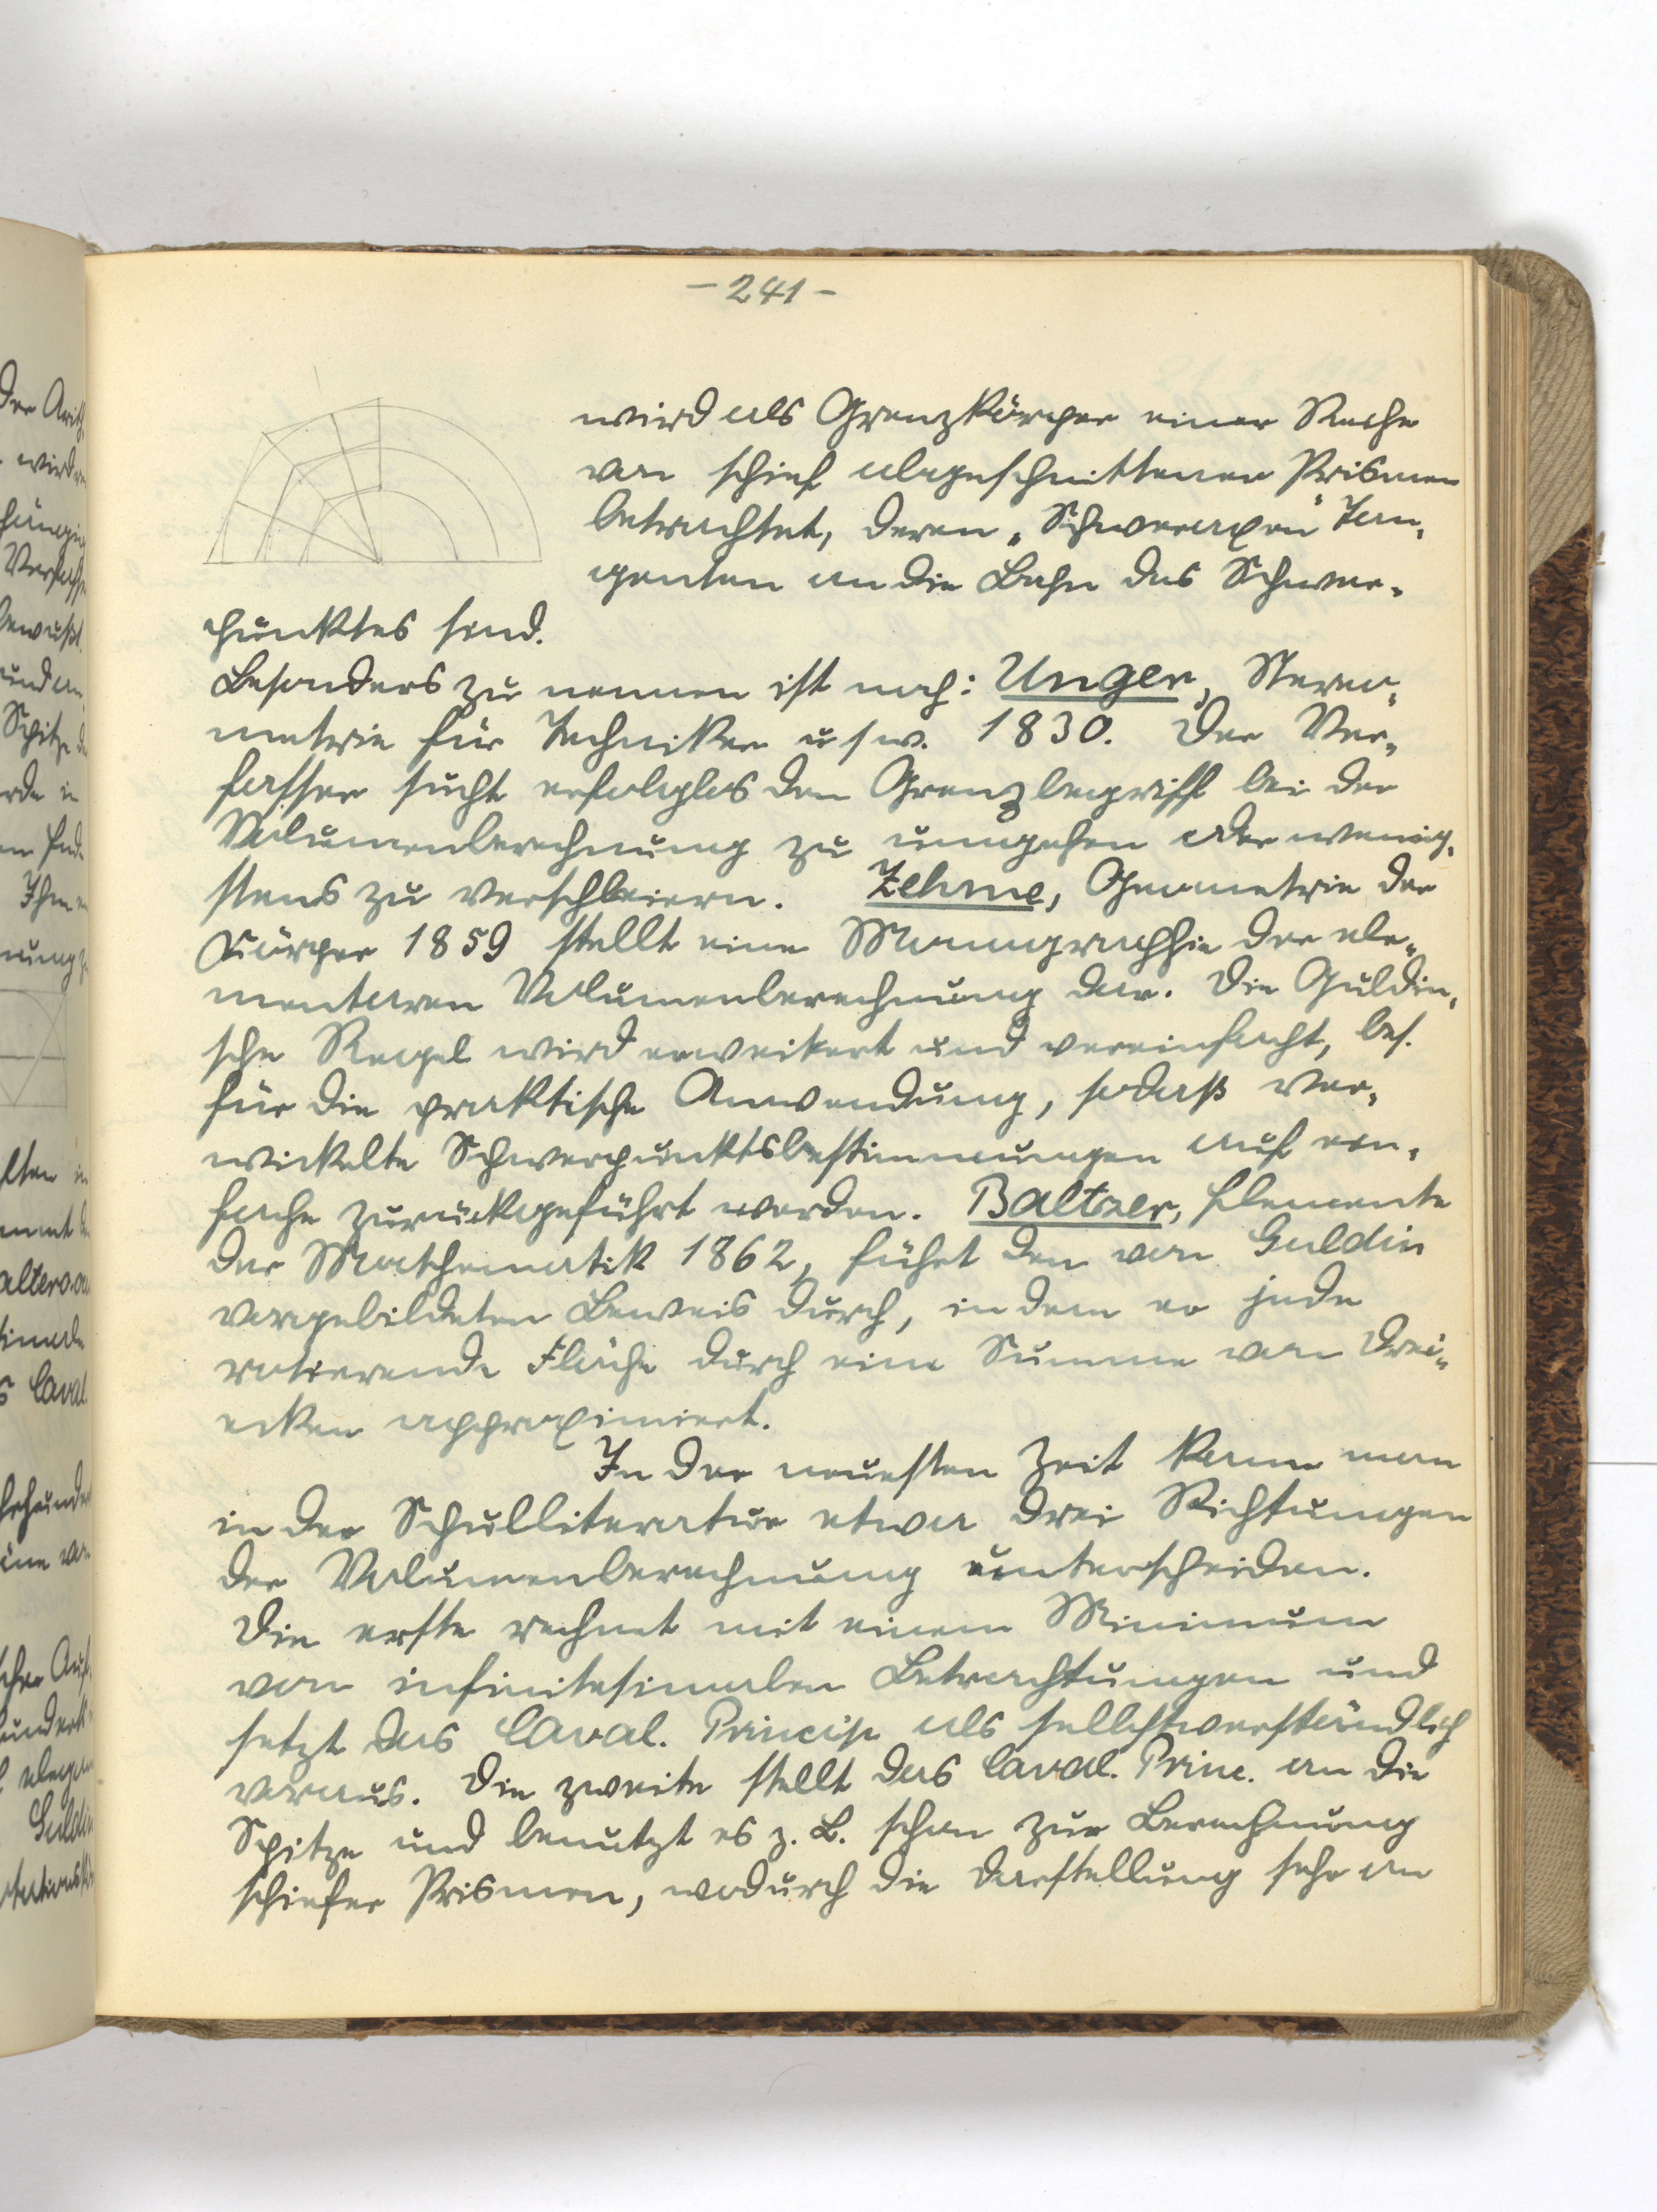 - 241 -
wird als Grenzkörper einer Reihe
von schief abgeschnittener Prismen
betrachtet, deren „Schweraxen" Tan-
genten an die Bahn des Schwer-
punktes sind.
Besonders zu nennen ist noch: Unger, Stereo-
metrie für Techniker usw. 1830. Der Ver-
fasser sucht erfolglos den Grenzbegriff bei der
Volumenberechnung zu umgehen oder wenig-
stens zu verschleiern. Zehme, Geometrie der
Körper 1859 stellt eine Monographie der ele-
mentaren Volumenberechnung dar. Die Guldin-
sche Regel wird erweitert und vereinfacht, bes.
für die praktische Anwendung, sodaß ver-
wickelte Schwerpunktsbestimmungen auf ein-
fache zurückgeführt werden. Baltzer, Elemente
der Mathematik 1862, führt den von Guldin
vorgebildeten Beweis durch, in dem er jede
rotierende Fläche durch eine Summe von Drei-
ecken approximiert.
In der neuesten Zeit kann man
in der Schulliteratur etwa drei Richtungen
der Volumenberechnung unterscheiden.
Die erste rechnet mit einem Minimum
von infinitesimalen Betrachtungen und
setzt das Caval. Princip als selbstverständlich
voraus. Die zweite stellt das Caval. Princ. an die
Spitze und benutzt es z. B. schon zur Berechnung
schiefer Prismen, wodurch die Darstellung sehr an